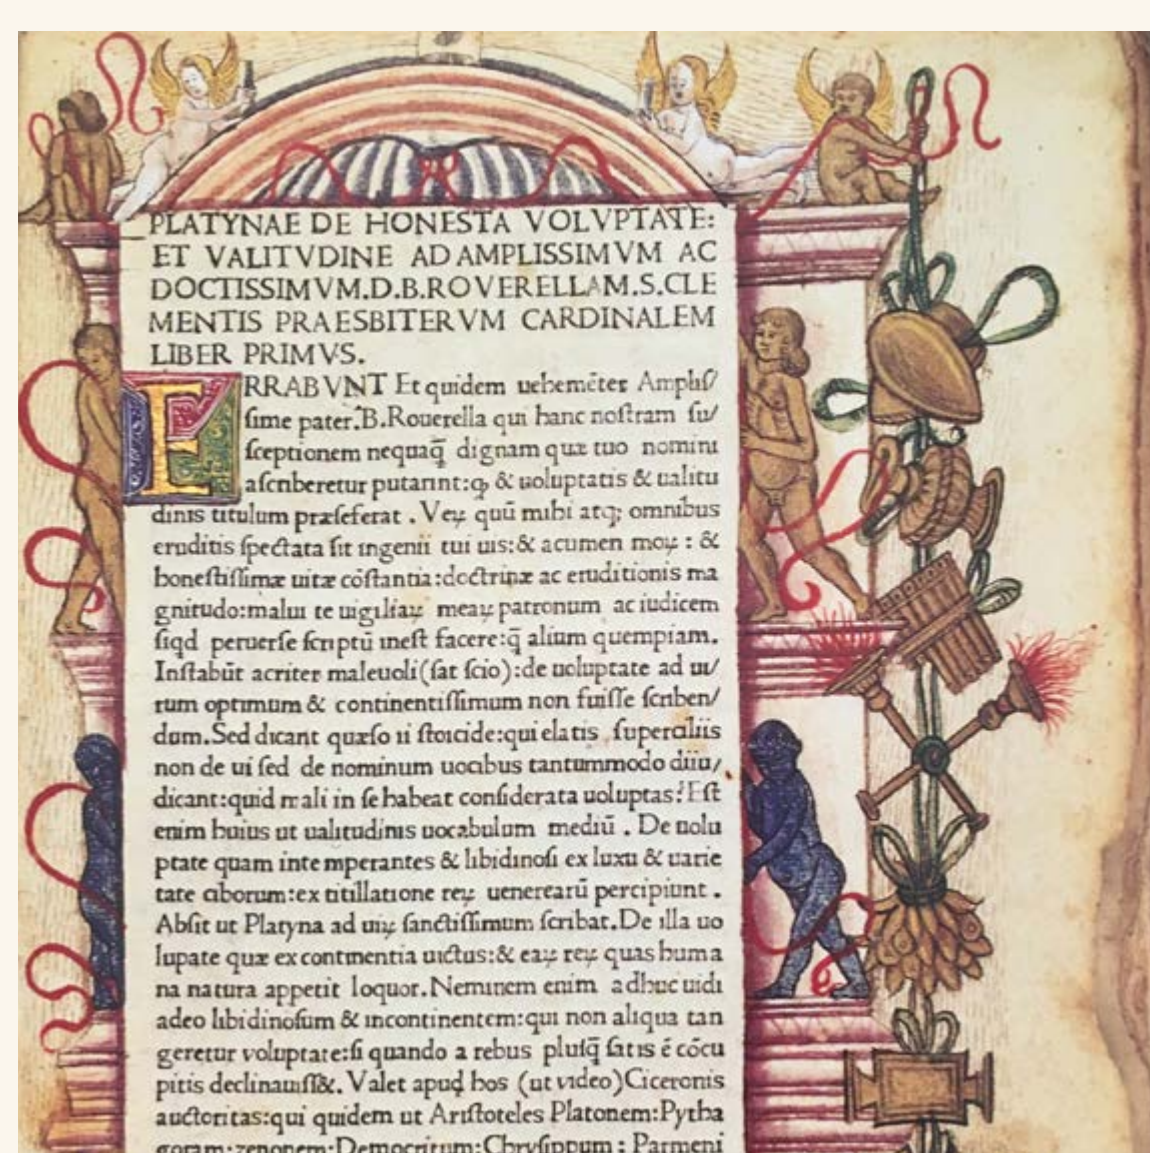 PLATYNAE DE HONESTA VOLVPTATE:
ET VALITVDINE AD AMPLISSIMVM AC
DOCTISSIMVM.D.B.ROVERELLAM.S.CLE
MENTIS PRAESBITERVM CARDINALEM
LIBER PRIMVS.
ERRABVNT Et quidem uehemēter Ampliſ/
ſime pater.B.Rouerella qui hanc noſtram ſu/
ſceptionem nequaq̄ dignam quæ tuo nomini
aſcriberetur putarint:ꝙ & uoluptatis & ualitu
dinis titulum præſeferat . Veꝝ quū mihi atq; omnibus
eruditis ſpectata ſit ingenii tui uis:& acumen moꝝ : &
honeſtiſſimæ uitæ cōſtantia:doctrinæ ac eruditionis ma
gnitudo:malui te uigiliaꝝ meaꝝ patronum ac iudicem
ſiqd peruerſe ſcriptū ineſt facere:q̄ alium quempiam.
Inſtabūt acriter maleuoli(ſat ſcio):de uoluptate ad ui/
rum optimum & continentiſſimum non fuiſſe ſcriben/
dum.Sed dicant quæſo ii ſtoicide:qui elatis ſuperciliis
non de ui ſed de nominum uocibus tantummodo diiu/
dicant:quid mali in ſe habeat conſiderata uoluptas?Eſt
enim huius ut ualitudinis uocabulum mediū . De uolu
ptate quam intemperantes & libidinoſi ex luxu & uarie
tate ciborum:ex titillatione reꝝ uenerearū percipiunt .
Abſit ut Platyna ad uiꝝ ſanctiſſimum ſcribat.De illa uo
lupate quæ ex continentia uictus:& eaꝝ reꝝ quas huma
na natura appetit loquor.Neminem enim adhuc uidi
adeo libidinoſum & incontinentem:qui non aliqua tan
geretur voluptate:ſi quando a rebus pluſq̄ ſatis ē cōcu
pitis declinauiſſ&. Valet apud hos (ut video)Ciceronis
auctoritas:qui quidem ut Ariſtoteles Platonem:Pytha
goram:zenonem:Democritum:Chryſippum : Parmeni